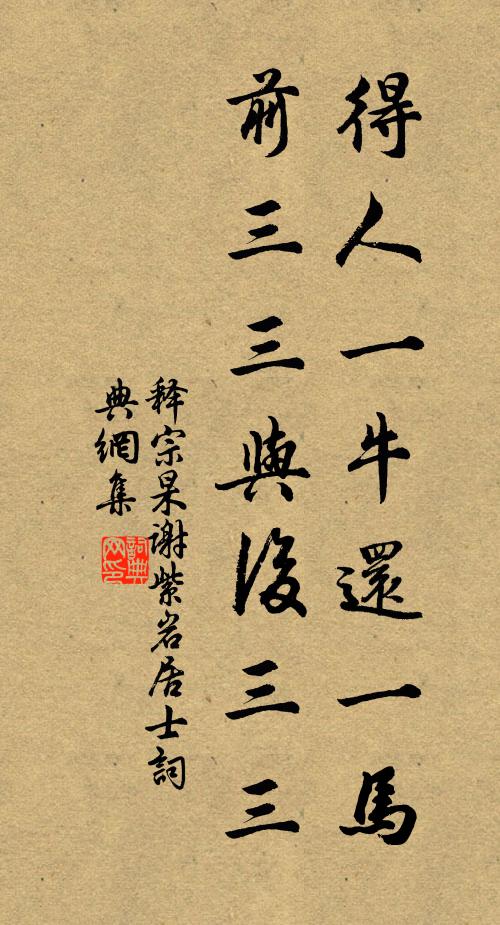 得人一牛還一馬
前三三與後三三
释宗杲谢紫岩居士詞
典網集
詞典網印